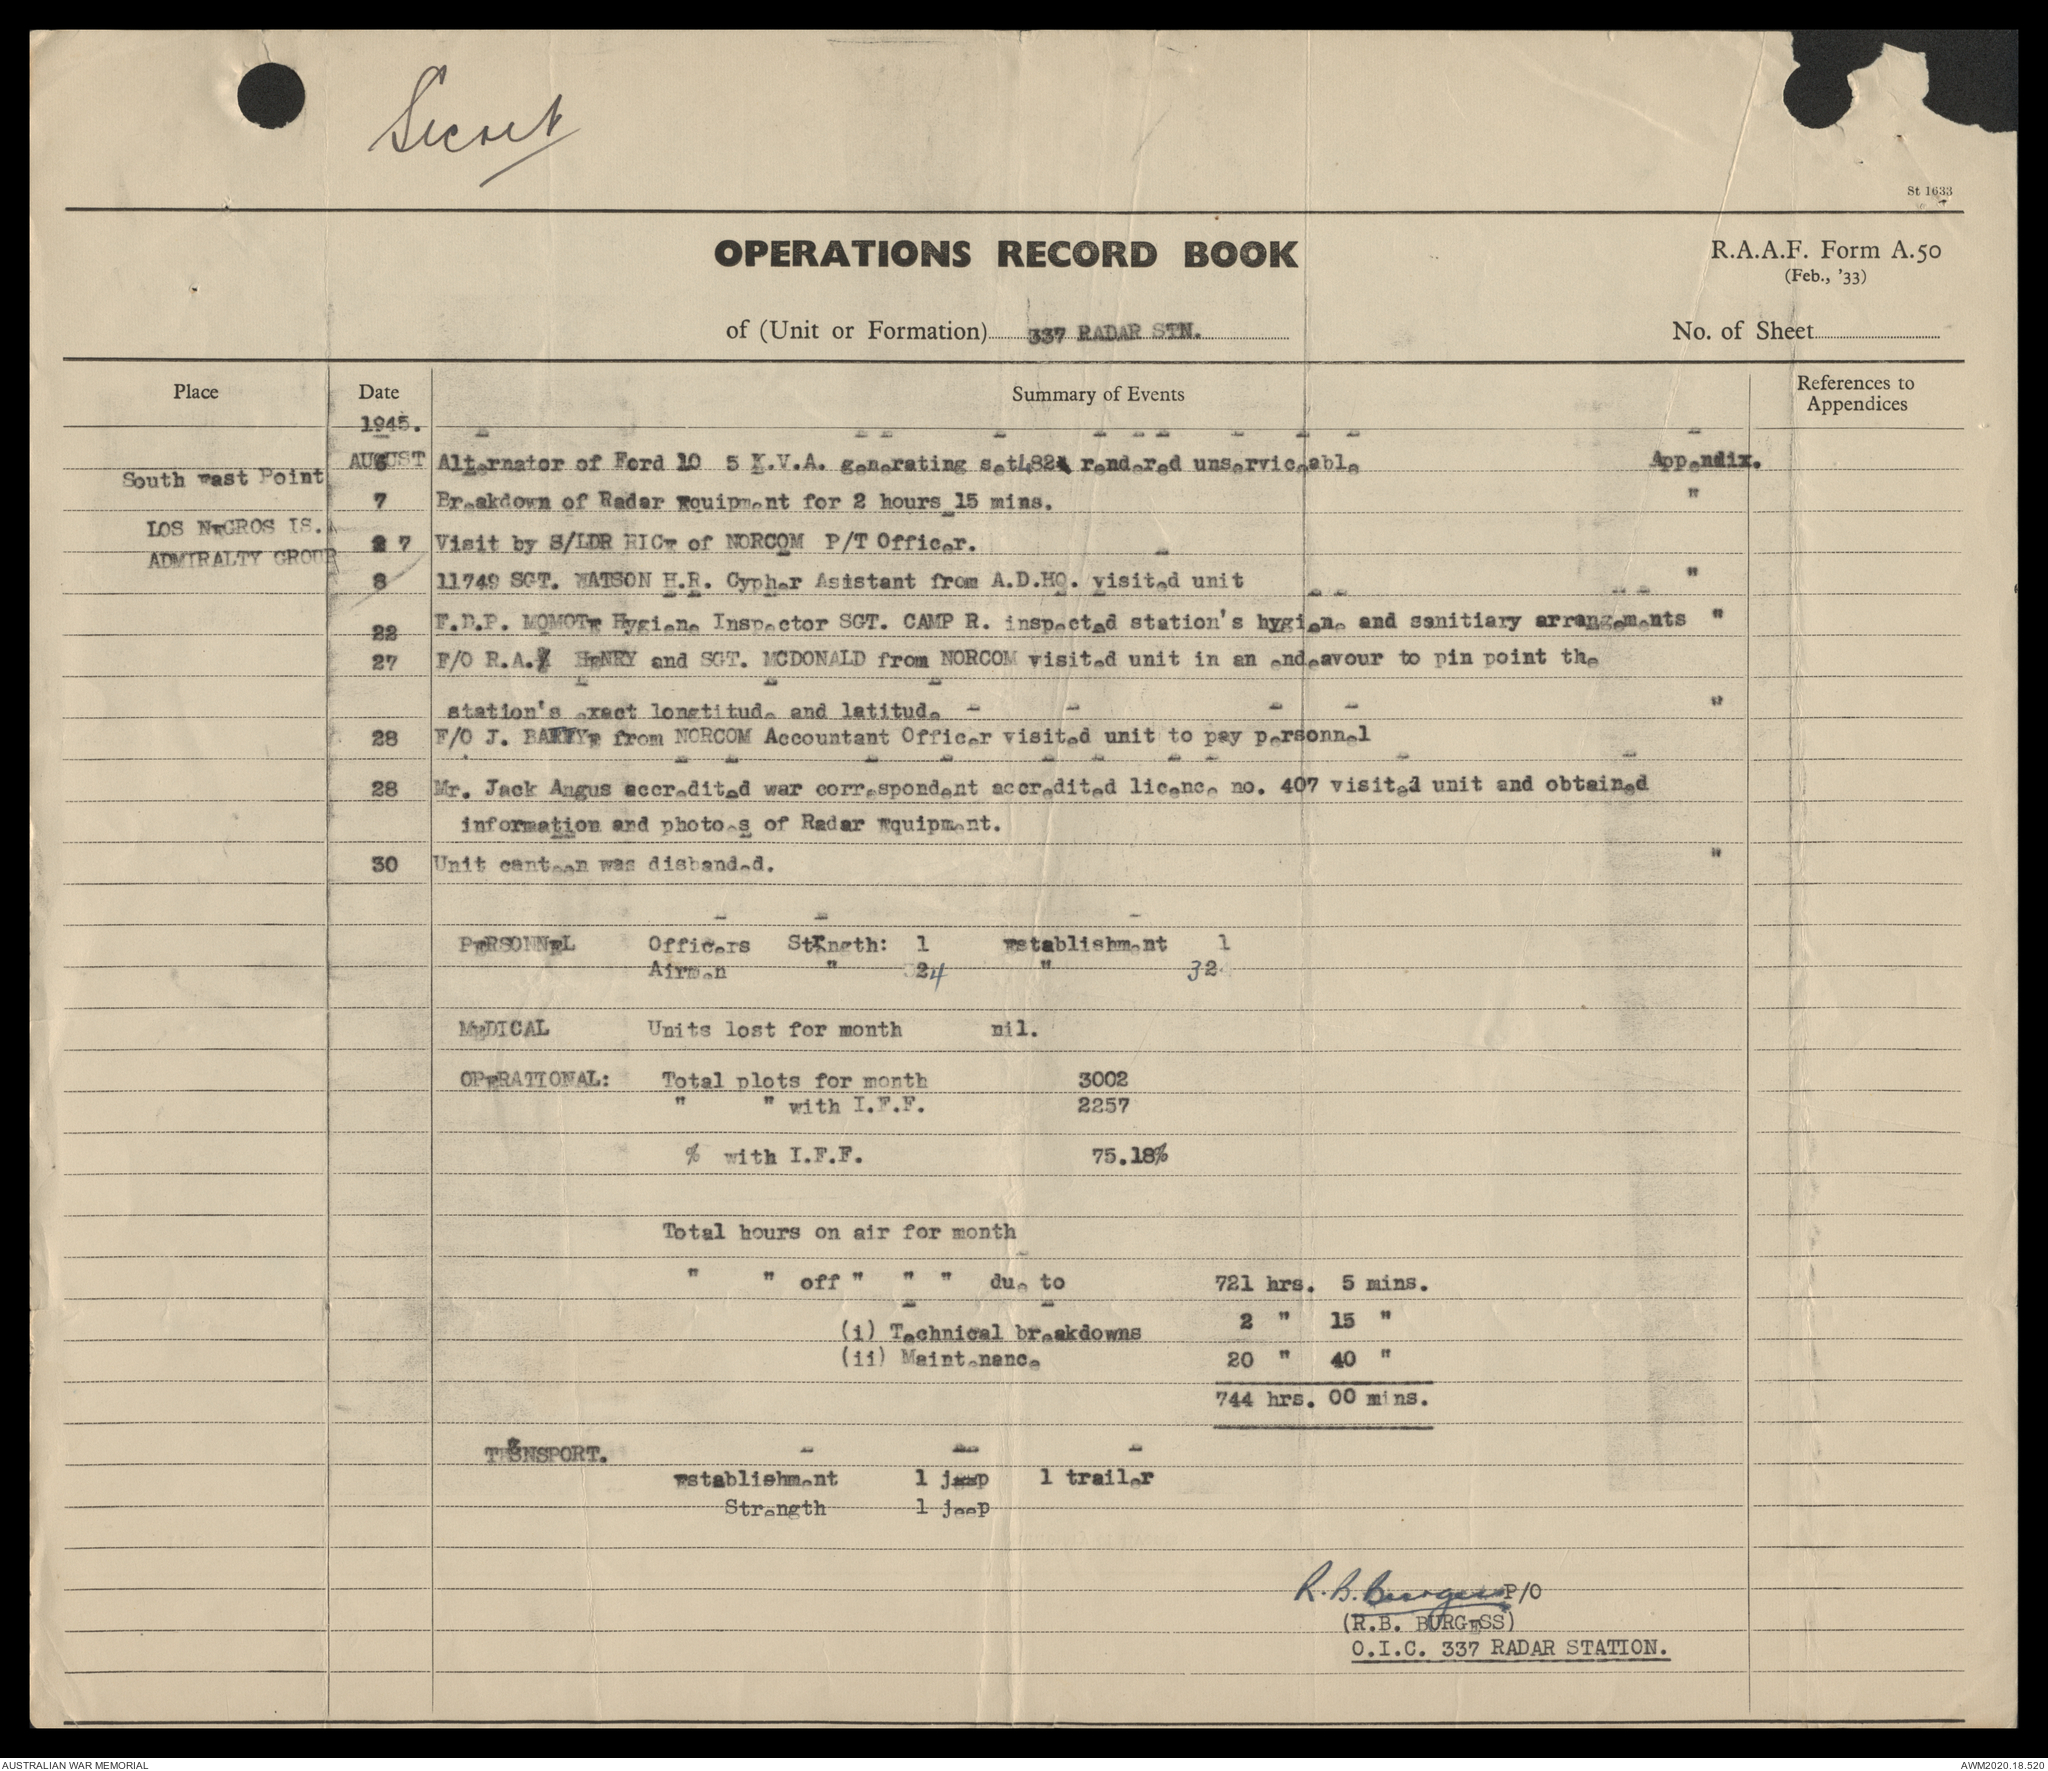 Secret
St 1633
OPERATIONS RECORD BOOK
R.A.A.F. Form A.50
(Feb., '33)
of (Unit or Formation) 337 RADAR STN.
No. of Sheet
Place Date Summary of Events References to Appendices
1945.
AUGUST
South East Point
6 Alternator of Ford 10 5 K.V.A. generating set 482 rendered unserviceable Appendix.
7 Breakdown of Radar Equipment for 2 hours 15 mins. "
LOS NEGROS IS.
ADMIRALTY GROUP
7 Visit by S/LDR RICE of NORCOM P/T Officer.
8 11749 SGT. WATSON H.R. Cypher Asistant from A.D.HQ. visited unit "
22 F.D.P. MOMOTE Hygiene Inspector SGT. CAMP R. inspected station's hygiene and sanitiary arrangements "
27 F/O R.A. HENRY and SGT. MCDONALD from NORCOM visited unit in an endeavour to pin point the
station's exact longtitude and latitude "
28 F/O J. from NORCOM Accountant Officer visited unit to pay personnel
28 Mr. Jack Angus accredited war correspondent accredited licence no. 407 visited unit and obtained
information and photoes of Radar Equipment.
30 Unit canteen was disbanded. "
PERSONNEL Officers Strength: 1 Establishment 1
Airmen " 24 " 32
MEDICAL Units lost for month nil.
OPERATIONAL: Total plots for month 3002
" " with I.F.F. 2257
% with I.F.F. 75.18%
Total hours on air for month
" " off " " " due to 721 hrs. 5 mins.
(i) Technical breakdowns 2 " 15 "
(ii) Maintenance 20 " 40 "
744 hrs. 00 mins.
TRANSPORT.
Establishment 1 jeep 1 trailer
Strength 1 jeep
R.B. Burgess P/O
(R.B. BURGESS)
O.I.C. 337 RADAR STATION.
AUSTRALIAN WAR MEMORIAL
AWM2020.18.520